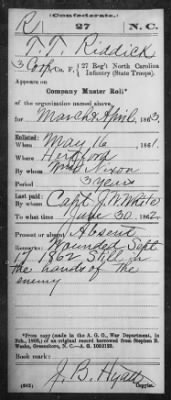 (Confederate.)
R 27 N.C.
T. T. Riddick
3 Corp, Co. F, 27 Reg't North Carolina
Infantry (State Troops)
Appears on
Company Muster Roll*
of the organization named above,
for March & April, 1863.
Enlisted:
When May 16, 1861.
Where Hertford
By whom Nixon
Period 3 years
Last paid:
By whom Capt J. N. White
To what time June 30, 1862.
Present or absent Absent
Remarks: Wounded Sept
17 1862 Still in
the hands of the
enemy
*From copy (made in the A. G. O., War Department, in
of an original record borrowed from Stephen B.
Weeks, Greensboro, N. C.—A. G.
Book mark:
J. B. Hyatt
(642) Copyist.